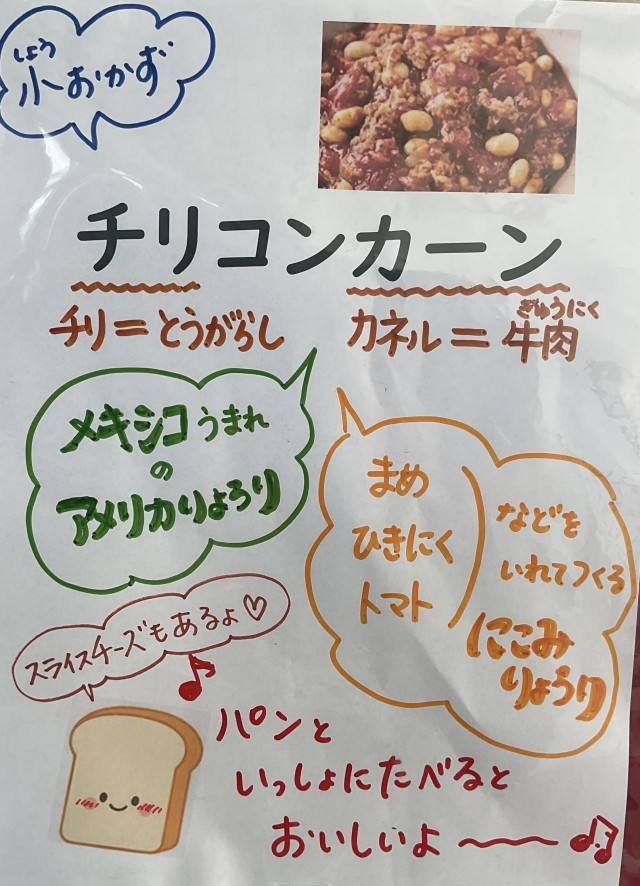 しょう
小おかず
チリコンカーン
チリ＝とうがらし
ぎゅうにく
カネル＝牛肉
メキシコうまれ
の
アメリカりょうり
まめ
ひきにく
トマト
などを
いれてつくる
にこみ
りょうり
スライスチーズもあるよ♡
パンと
いっしょにたべると
おいしいよ〜〜